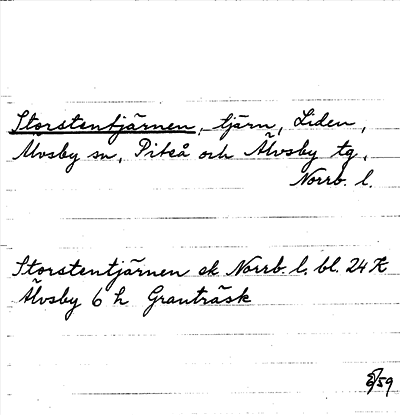 Storstentjärnen, tjärn, Liden,
Älvsby sn, Piteå och Älvsby tg,
Norrb. l.
Storstentjärnen ek Norrb. l. bl. 24 K
Älvsby 6 h Granträsk
/59